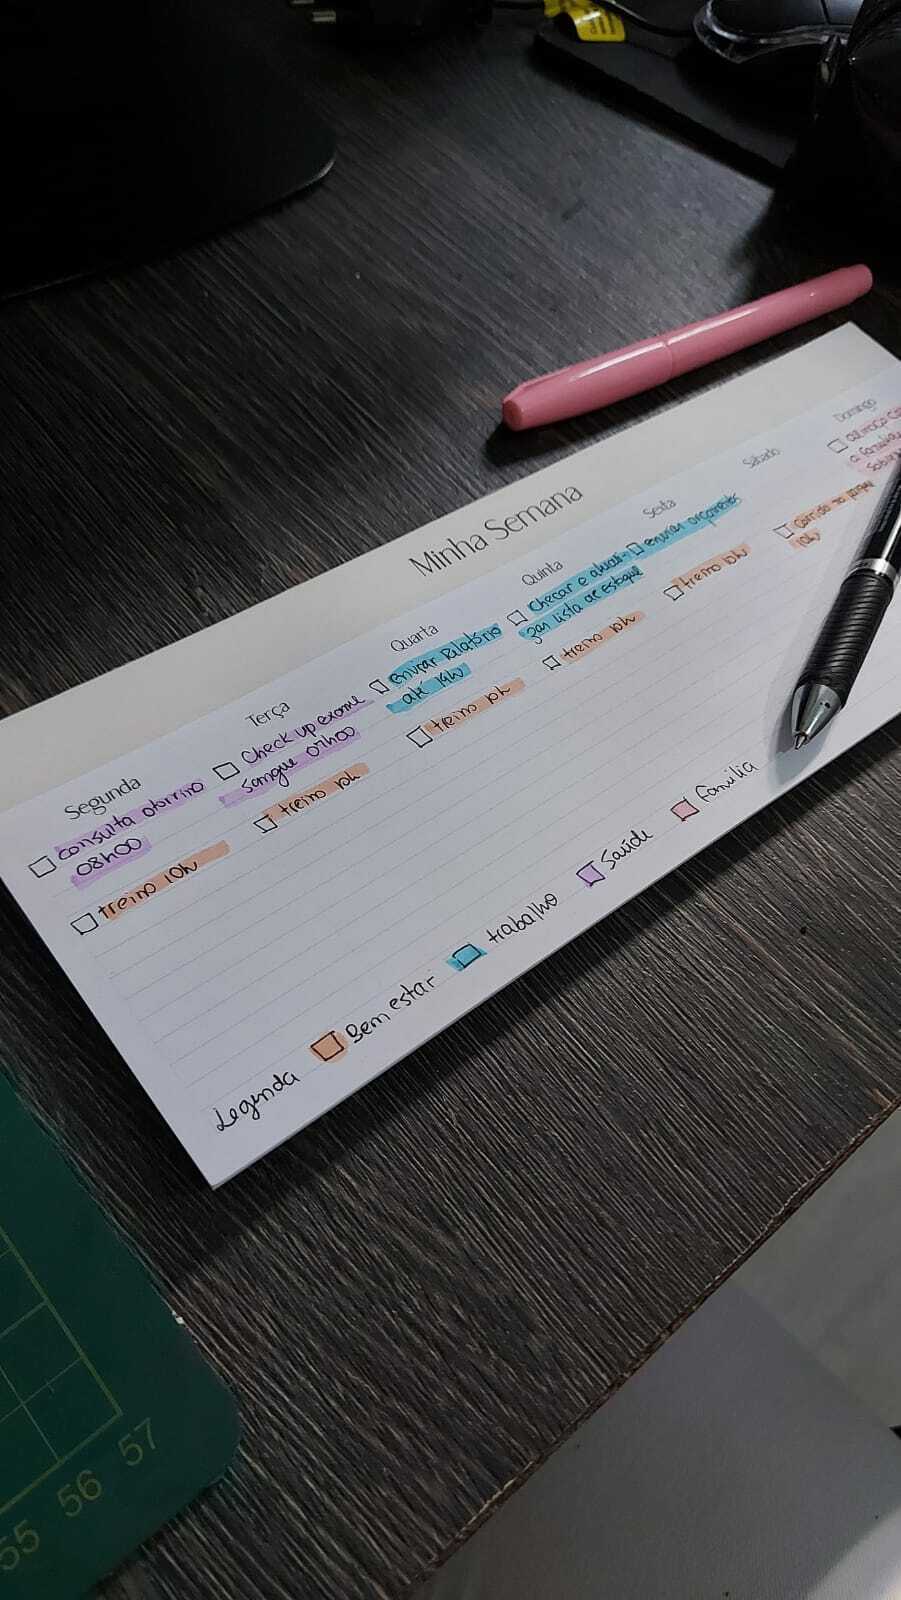 Minha Semana
Segunda
consulta otorrino
08h00
treino 10h
Terça
Check up exame
sangue 07h00
treino 10h
Quarta
enviar Relatório
até 14h
treino 10h
Quinta
Checar e atuali-
zar lista de estoque
treino 10h
Sexta
enviar orçamentos
treino 10h
Sábado
Corrida no parque
10h
Domingo
almoço
a família
Legenda
Bem estar
trabalho
Saúde
Família
55 56 57